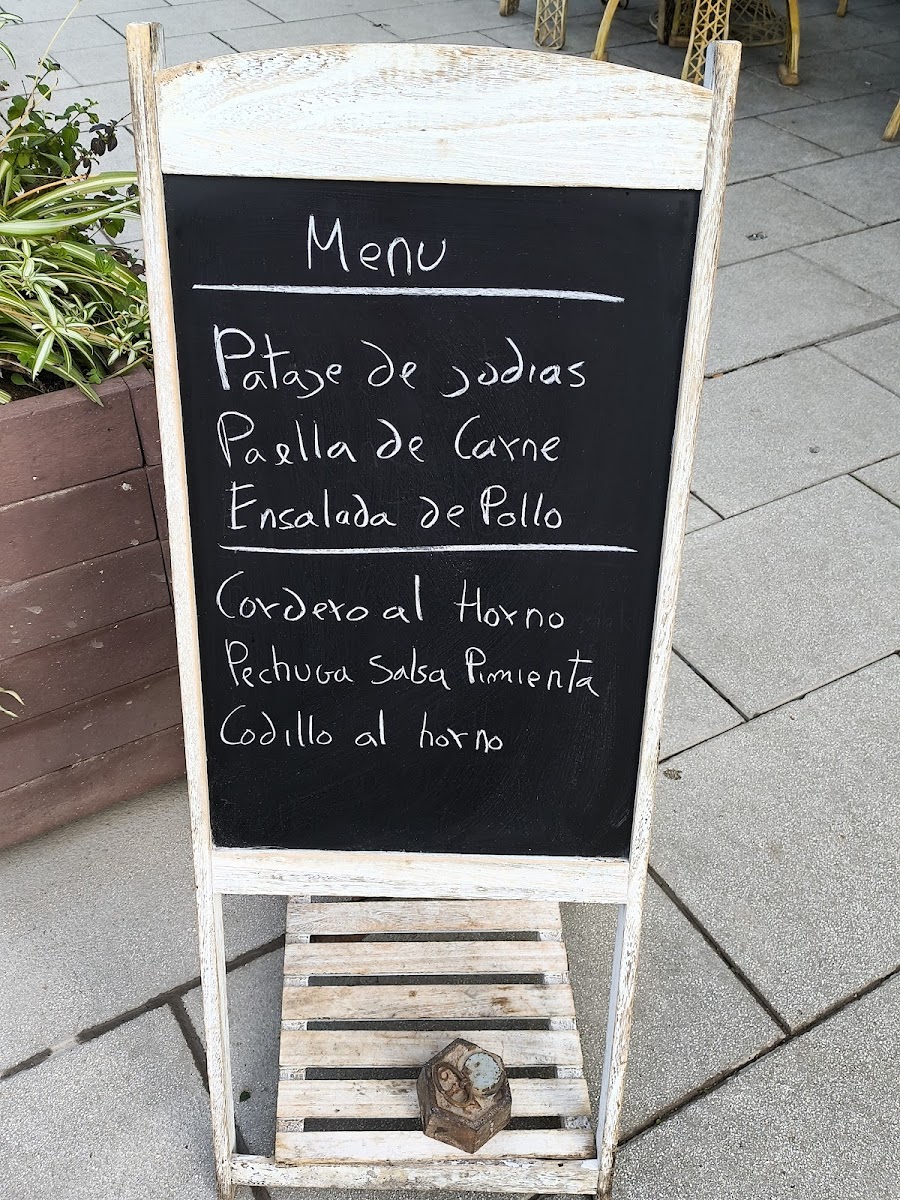 Menu
Potaje de judias
Paella de Carne
Ensalada de Pollo
Cordero al Horno
Pechuga Salsa Pimienta
Codillo al horno